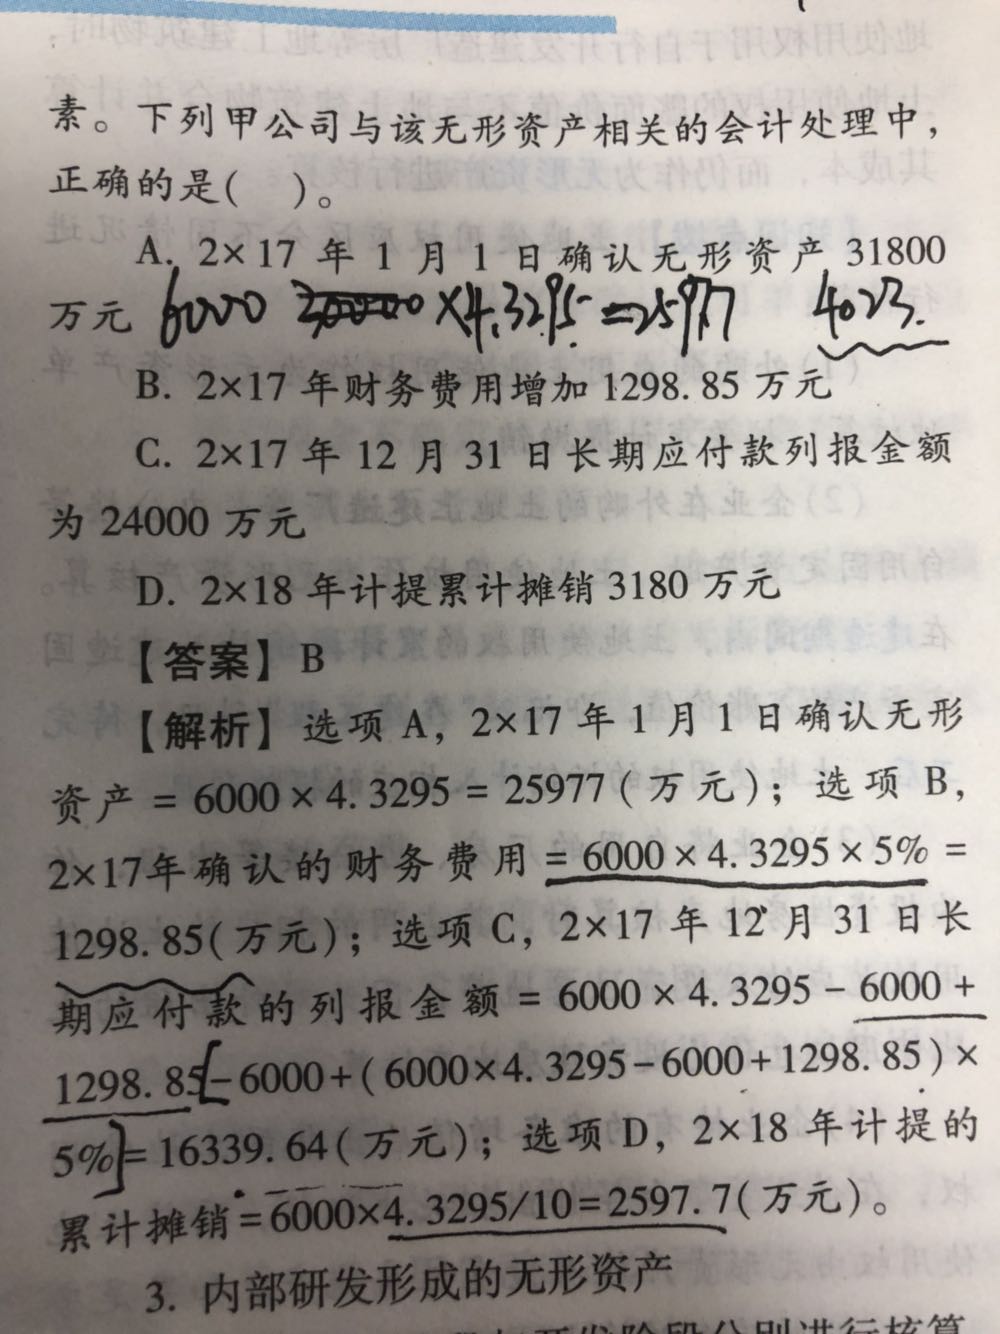 素。下列甲公司与该无形资产相关的会计处理中，
正确的是(　)。
A. 2×17 年 1 月 1 日确认无形资产 31800
万元 6000 30000 ×4.3295=25977 4023.
B. 2×17 年财务费用增加 1298. 85 万元
C. 2×17 年 12 月 31 日长期应付款列报金额
为 24000 万元
D. 2×18 年计提累计摊销 3180 万元
【答案】B
【解析】选项 A，2×17 年 1 月 1 日确认无形
资产 = 6000 × 4. 3295 = 25977 ( 万元)；选项 B，
2×17年确认的财务费用 = 6000 × 4. 3295 × 5% =
1298. 85(万元)；选项 C，2×17 年 12 月 31 日长
期应付款的列报金额 = 6000 × 4. 3295 - 6000 +
1298. 85[-6000+(6000×4. 3295-6000+1298. 85)×
5%]= 16339. 64(万元)；选项 D，2×18 年计提的
累计摊销=6000×4. 3295/10=2597. 7(万元)。
3. 内部研发形成的无形资产